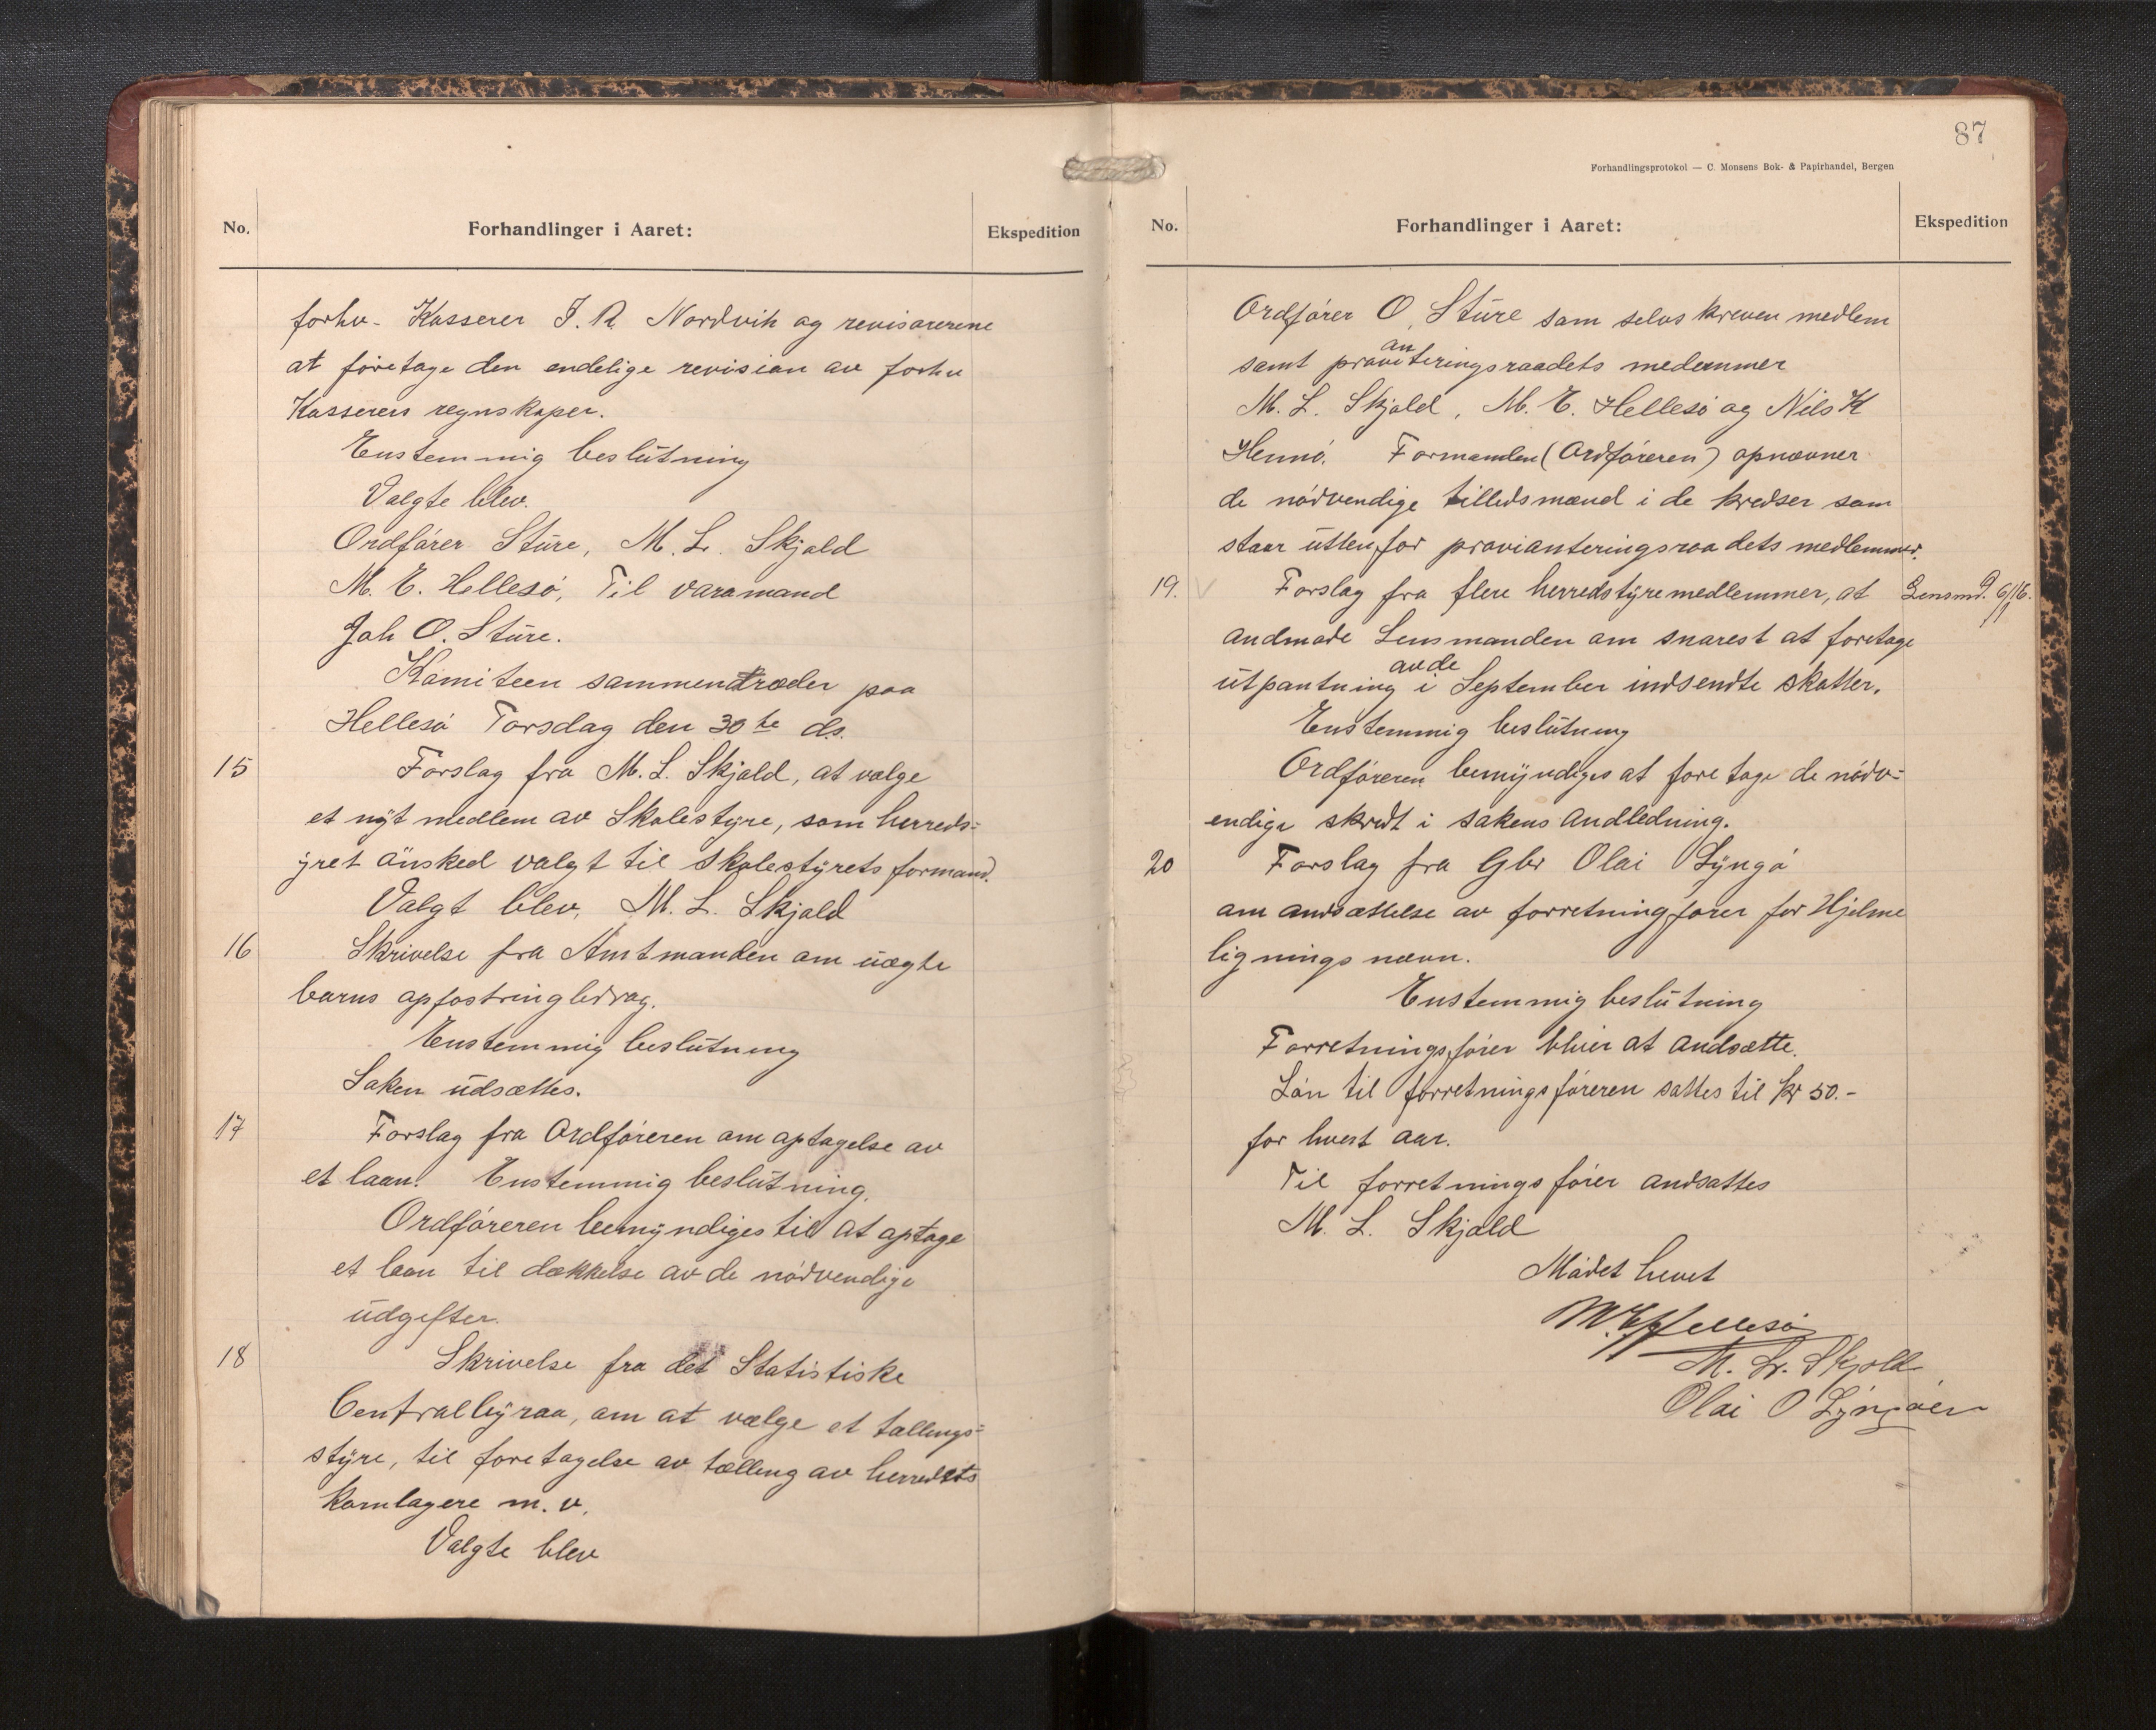 No.
Forhandlinger i Aaret:
Ekspedition
forhv. Kasserer J. R Nordvik og revisorerene
at företage den endelige revision av forhv
Kasserers regnskaper.
Enstemmig beslutning
Valgte blev.
Ordfører Sture, M. L. Skjold
M. E. Hellesö, Til varamand
Joh O. Sture.
Komiteen sammentræder paa
Hellesö Torsdag den 30te ds.
15 Forslag fra M. L. Skjold, at vælge
et nyt medlem av Skolestyre, som herreds=
yret önsked valgt til skolestyrets formand.
Valgt blev, M. L. Skjold
16 Skrivelse fra Amtmanden om uægte
barns opfostringbidrag.
Enstemmig beslutning
Saken udsættes.
17 Forslag fra Ordföreren om optagelse av
et laan. Enstemmig beslutning.
Ordföreren bemyndiges til at optage
et laan til dækkelse av de nödvendige
udgifter.
18 Skrivelse fra det Statistiske
Centralbyraa, om at vælge et tællings=
styre, til foretagelse av tælling av herredets
kornlagere m. v.
Valgte blev
87
Forhandlingsprotokol — C. Monsens Bok- & Papirhandel, Bergen
No.
Forhandlinger i Aaret:
Ekspedition
Ordförer O. Sture som selvskreven medlem
an
samt proviteringsraadets medemmer
M. L. Skjold, M. E. Hellesö og Nils K
Hennö. Formanden (Ordföreren) opnævner
de nödvendige tillidsmænd i de kredser som
staar utten for provianteringsraadets medlemmer.
19. V Forslag fra flere herredstyremedlemmer, at Lensmd. 6/1 16.
andmode Lensmanden om snarest at foretage
av de
utpantning i September indsendte skatter.
Enstemmig beslutning
Ordföreren bemyndiges at foretage de nödv=
endige skridt i sakens Andledning.
20 Forslag fra Gbr Olai Lyngö
om andsættelse av forretningförer for Hjelme
ligningsnævn.
Enstemmig beslutning
Forretningsförer bliver at andsætte.
Lön til forretningsföreren sattes til kr 50.-
for hvert aar.
Til forretningsförer andsattes
M. L. Skjold
Mödet hevet
M. E. Hellesö
M. L. Skjold
Olai O Lyngöen